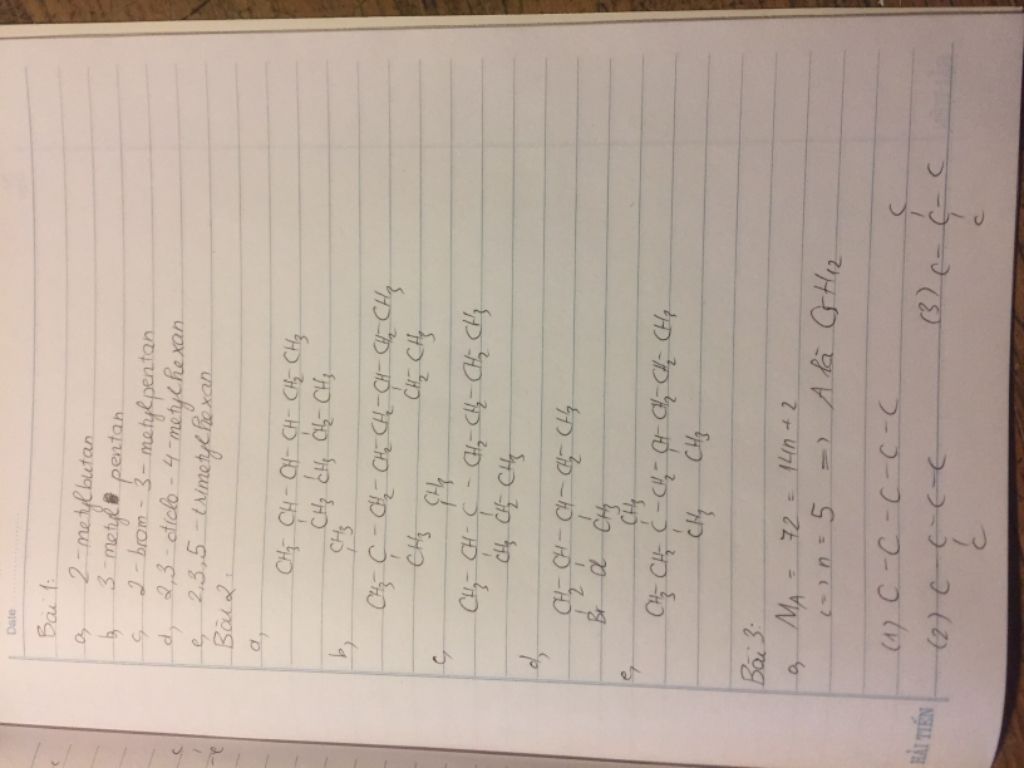 Date
Bài 1:
a, 2-metylbutan
b, 3-metyl pentan
c, 2-brom-3-metylpentan
d, 2,3-diclo-4-metylhexan
e, 2,3,5-trimetylhexan
Bài 2:
a,
CH3-CH-CH-CH-CH2-CH3
CH3 CH3 CH2-CH3
b,
CH3
CH3-C-CH2-CH2-CH2-CH-CH2-CH3
CH3 CH2-CH3
c,
CH3
CH3-CH-C-CH2-CH2-CH2-CH3
CH3 CH2-CH3
d,
CH2-CH-CH-CH2-CH3
Br Cl CH3
e,
CH3
CH3-CH2-C-CH2-CH-CH2-CH2-CH3
CH3 CH3
Bài 3:
a, MA = 72 = 14n+2
<=> n = 5 => A là C5H12
(1) C-C-C-C-C
C
(2) C-C-C-C (3) C-C-C
C C
HẢI TIẾN